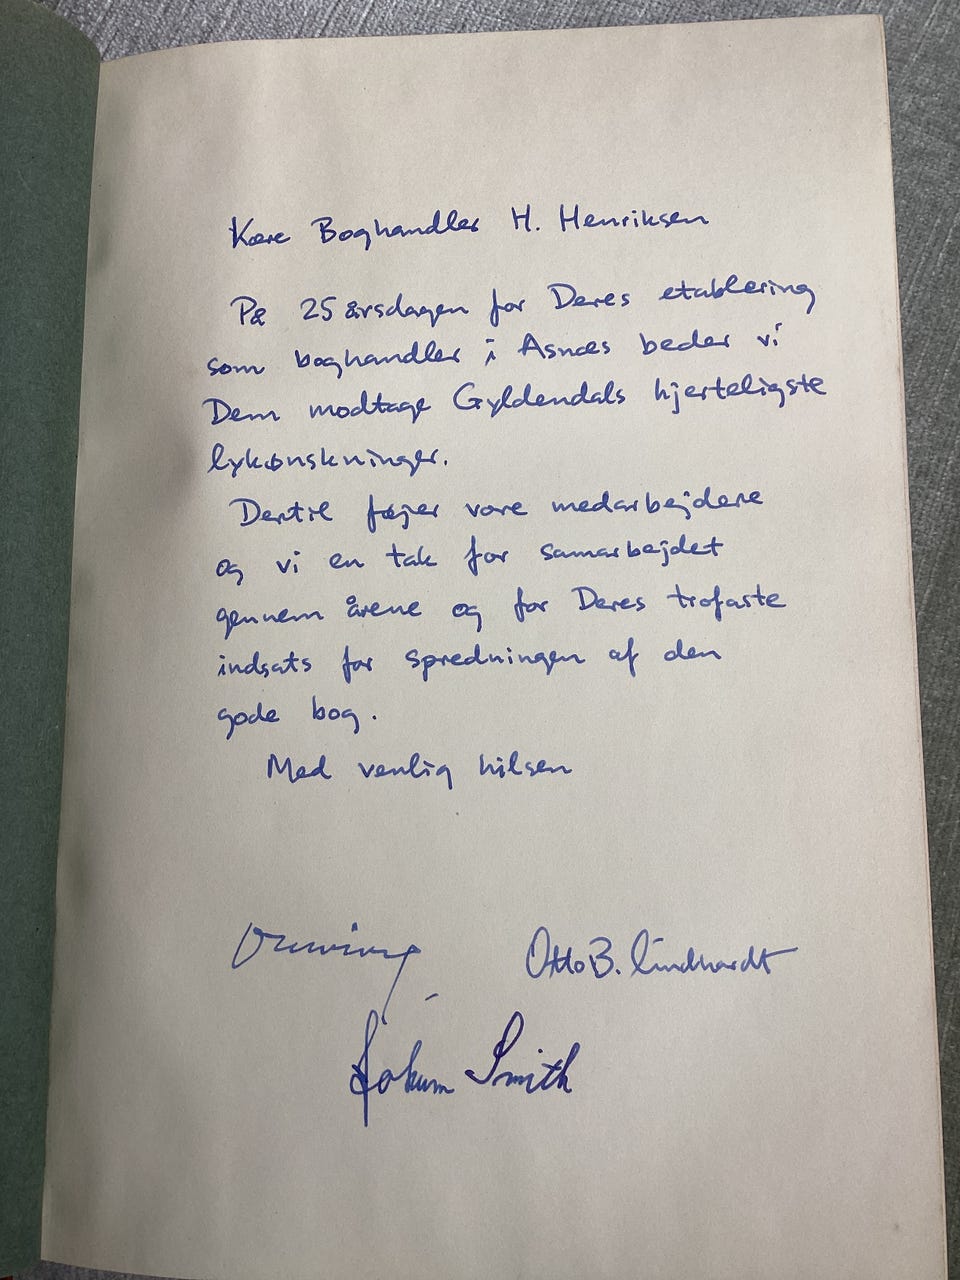 Kære Boghandler H. Henriksen
På 25 årsdagen for Deres etablering
som boghandler i Asnæs beder vi
Dem modtage Gyldendals hjerteligste
lykønskninger.
Dertil føjer vore medarbejdere
og vi en tak for samarbejdet
gennem årene og for Deres trofaste
indsats for spredningen af den
gode bog.
Med venlig hilsen
Otto B. Lindhardt
Jokum Smith